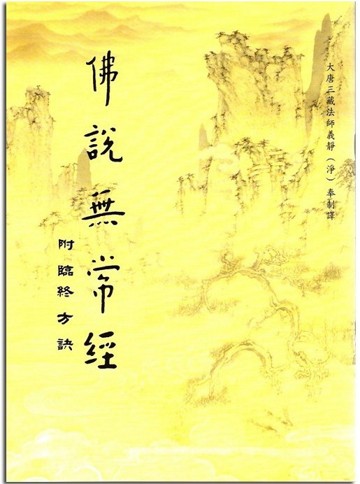 大唐三藏法師義靜（淨）奉制譯
佛說無常經
附臨終方訣